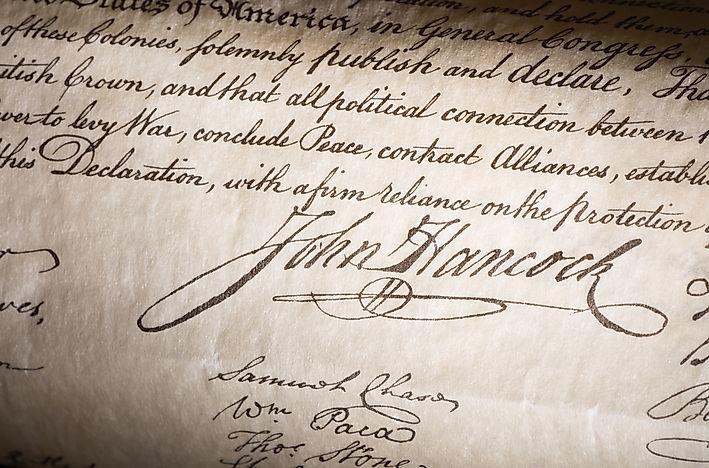 States of America, in General Congress,
of these Colonies, solemnly publish and declare, Tha
itish Crown, and that all political connection between
wer to levy War, conclude Peace, contract Alliances, establis
this Declaration, with a firm reliance on the protection
John Hancock
Samuel Chase
Wm Paca
Thos. Stone